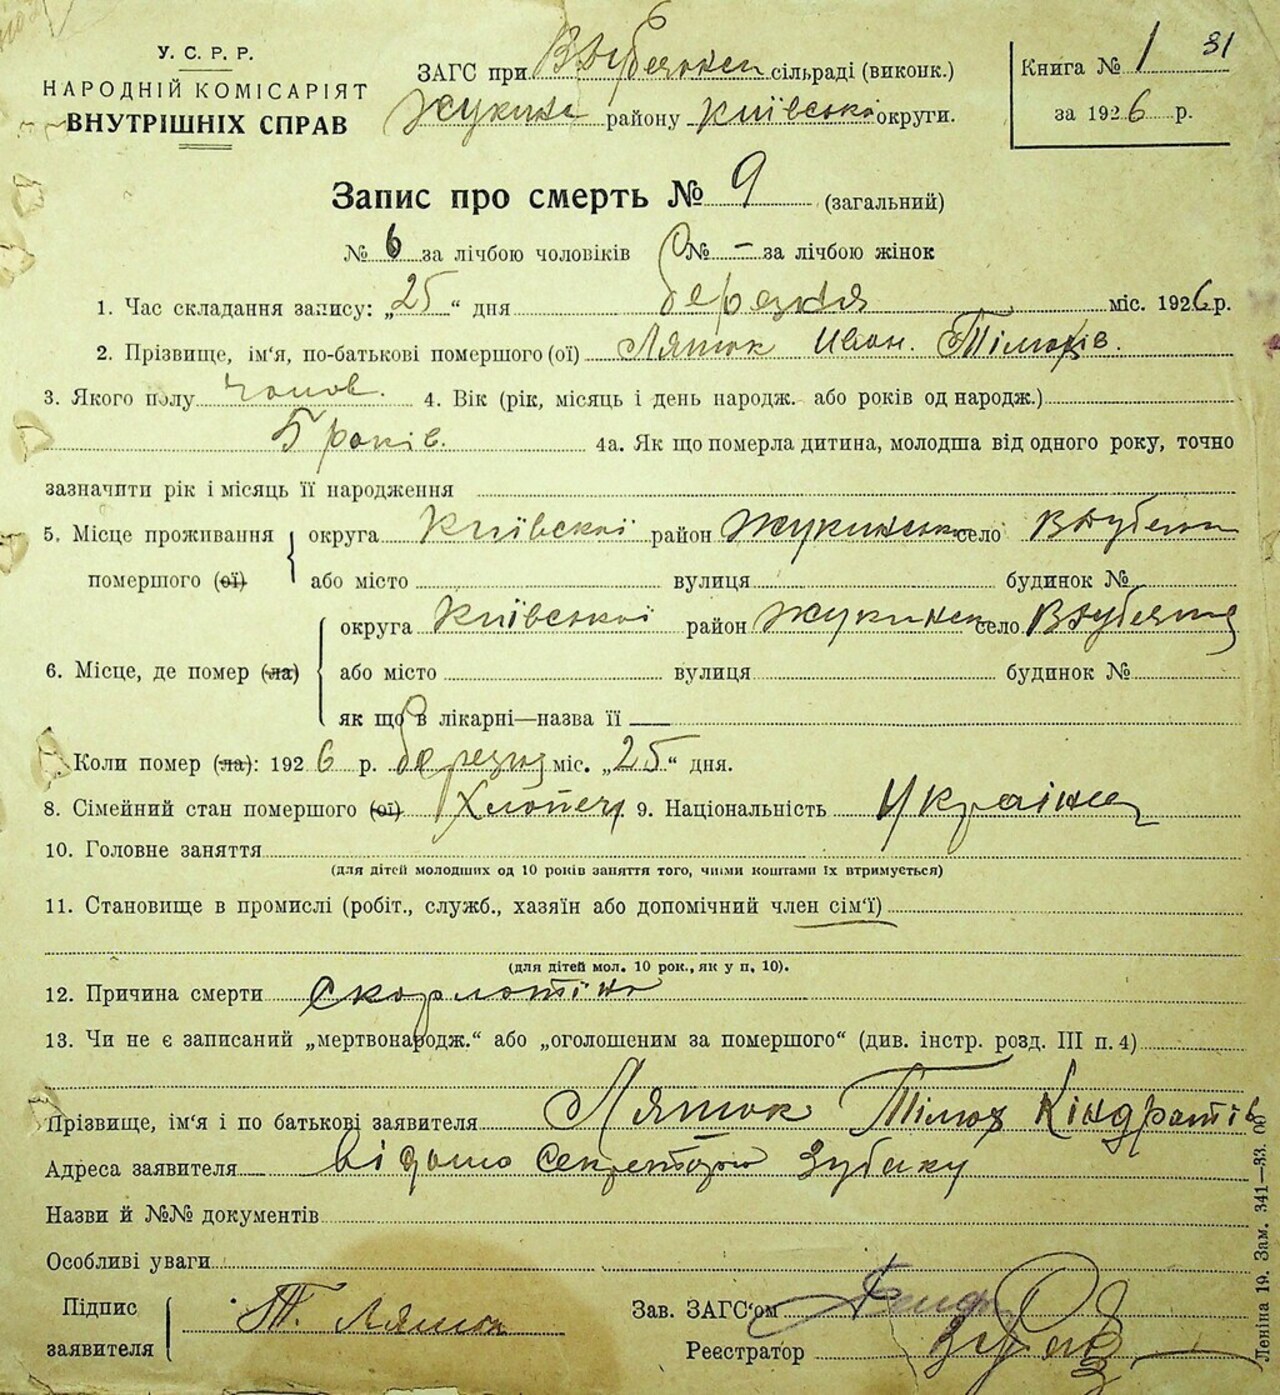 У. С. Р. Р.
НАРОДНІЙ КОМІСАРІЯТ
ВНУТРІШНІХ СПРАВ
ЗАГС при В Дубечнен сільраді (виконк.)
Жукинс району Київської округи.
Книга № 1 31
за 1926 р.
Запис про смерть № 9 (загальний)
№ 6 за лічбою чоловіків № – за лічбою жінок
1. Час складання запису: „25“ дня березня міс. 1926 р.
2. Прізвище, ім'я, по-батькові помершого (ої) Ляток Иван. Тімохів.
3. Якого полу чолов. 4. Вік (рік, місяць і день народж. або років од народж.)
5 років. 4а. Як що померла дитина, молодша від одного року, точно
зазначити рік і місяць її народження
5. Місце проживання округа Київскої район Жукинськ село В Дубечн
помершого (ої) або місто вулиця будинок №
округа Київської район Жукинськ село В Дубечня
6. Місце, де помер (ла) або місто вулиця будинок №
як що в лікарні—назва її —
Коли помер (ла): 1926 р. березня міс. „25“ дня.
8. Сімейний стан помершого (ої) Хлопець 9. Національність Українец
10. Головне заняття
(для дітей молодших од 10 років заняття того, чиїми коштами їх втримується)
11. Становище в промислі (робіт., служб., хазяїн або допомічний член сім'ї)
(для дітей мол. 10 рок., як у п. 10).
12. Причина смерти Скорлотіна
13. Чи не є записаний „мертвонародж.“ або „оголошеним за помершого“ (див. інстр. розд. III п. 4)
Прізвище, ім'я і по батькові заявителя Ляток Тімох Кіндратів
Адреса заявителя відомо Секретарю Зубаку
Назви й №№ документів
Особливі уваги
Підпис
заявителя
Т. Ляток
Зав. ЗАГС'ом
Реєстратор
Леніна 19. Зам. 341—33. 00